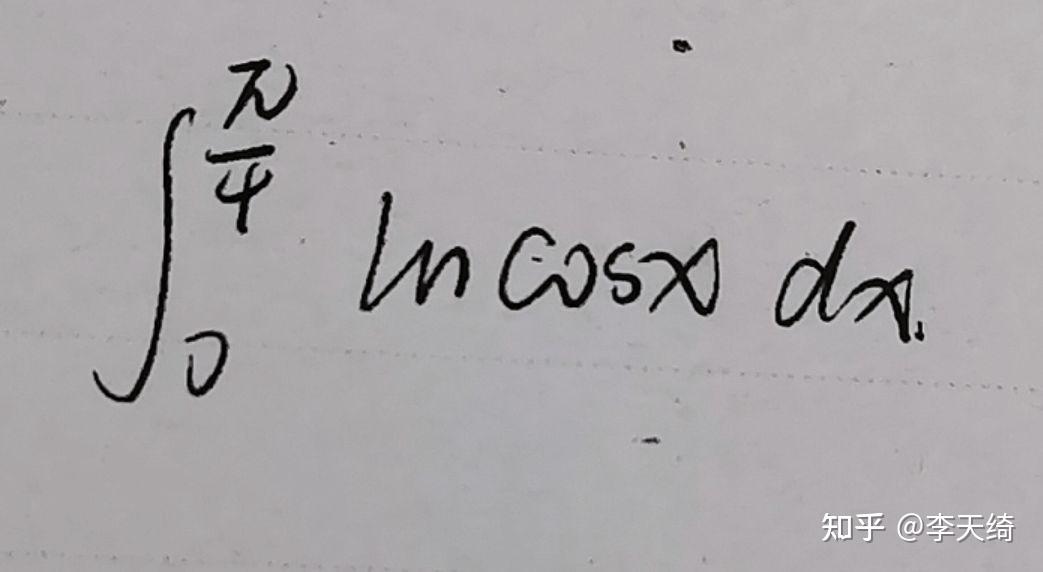 ∫₀^{π/4} ln cosx dx.
知乎 @李天绮